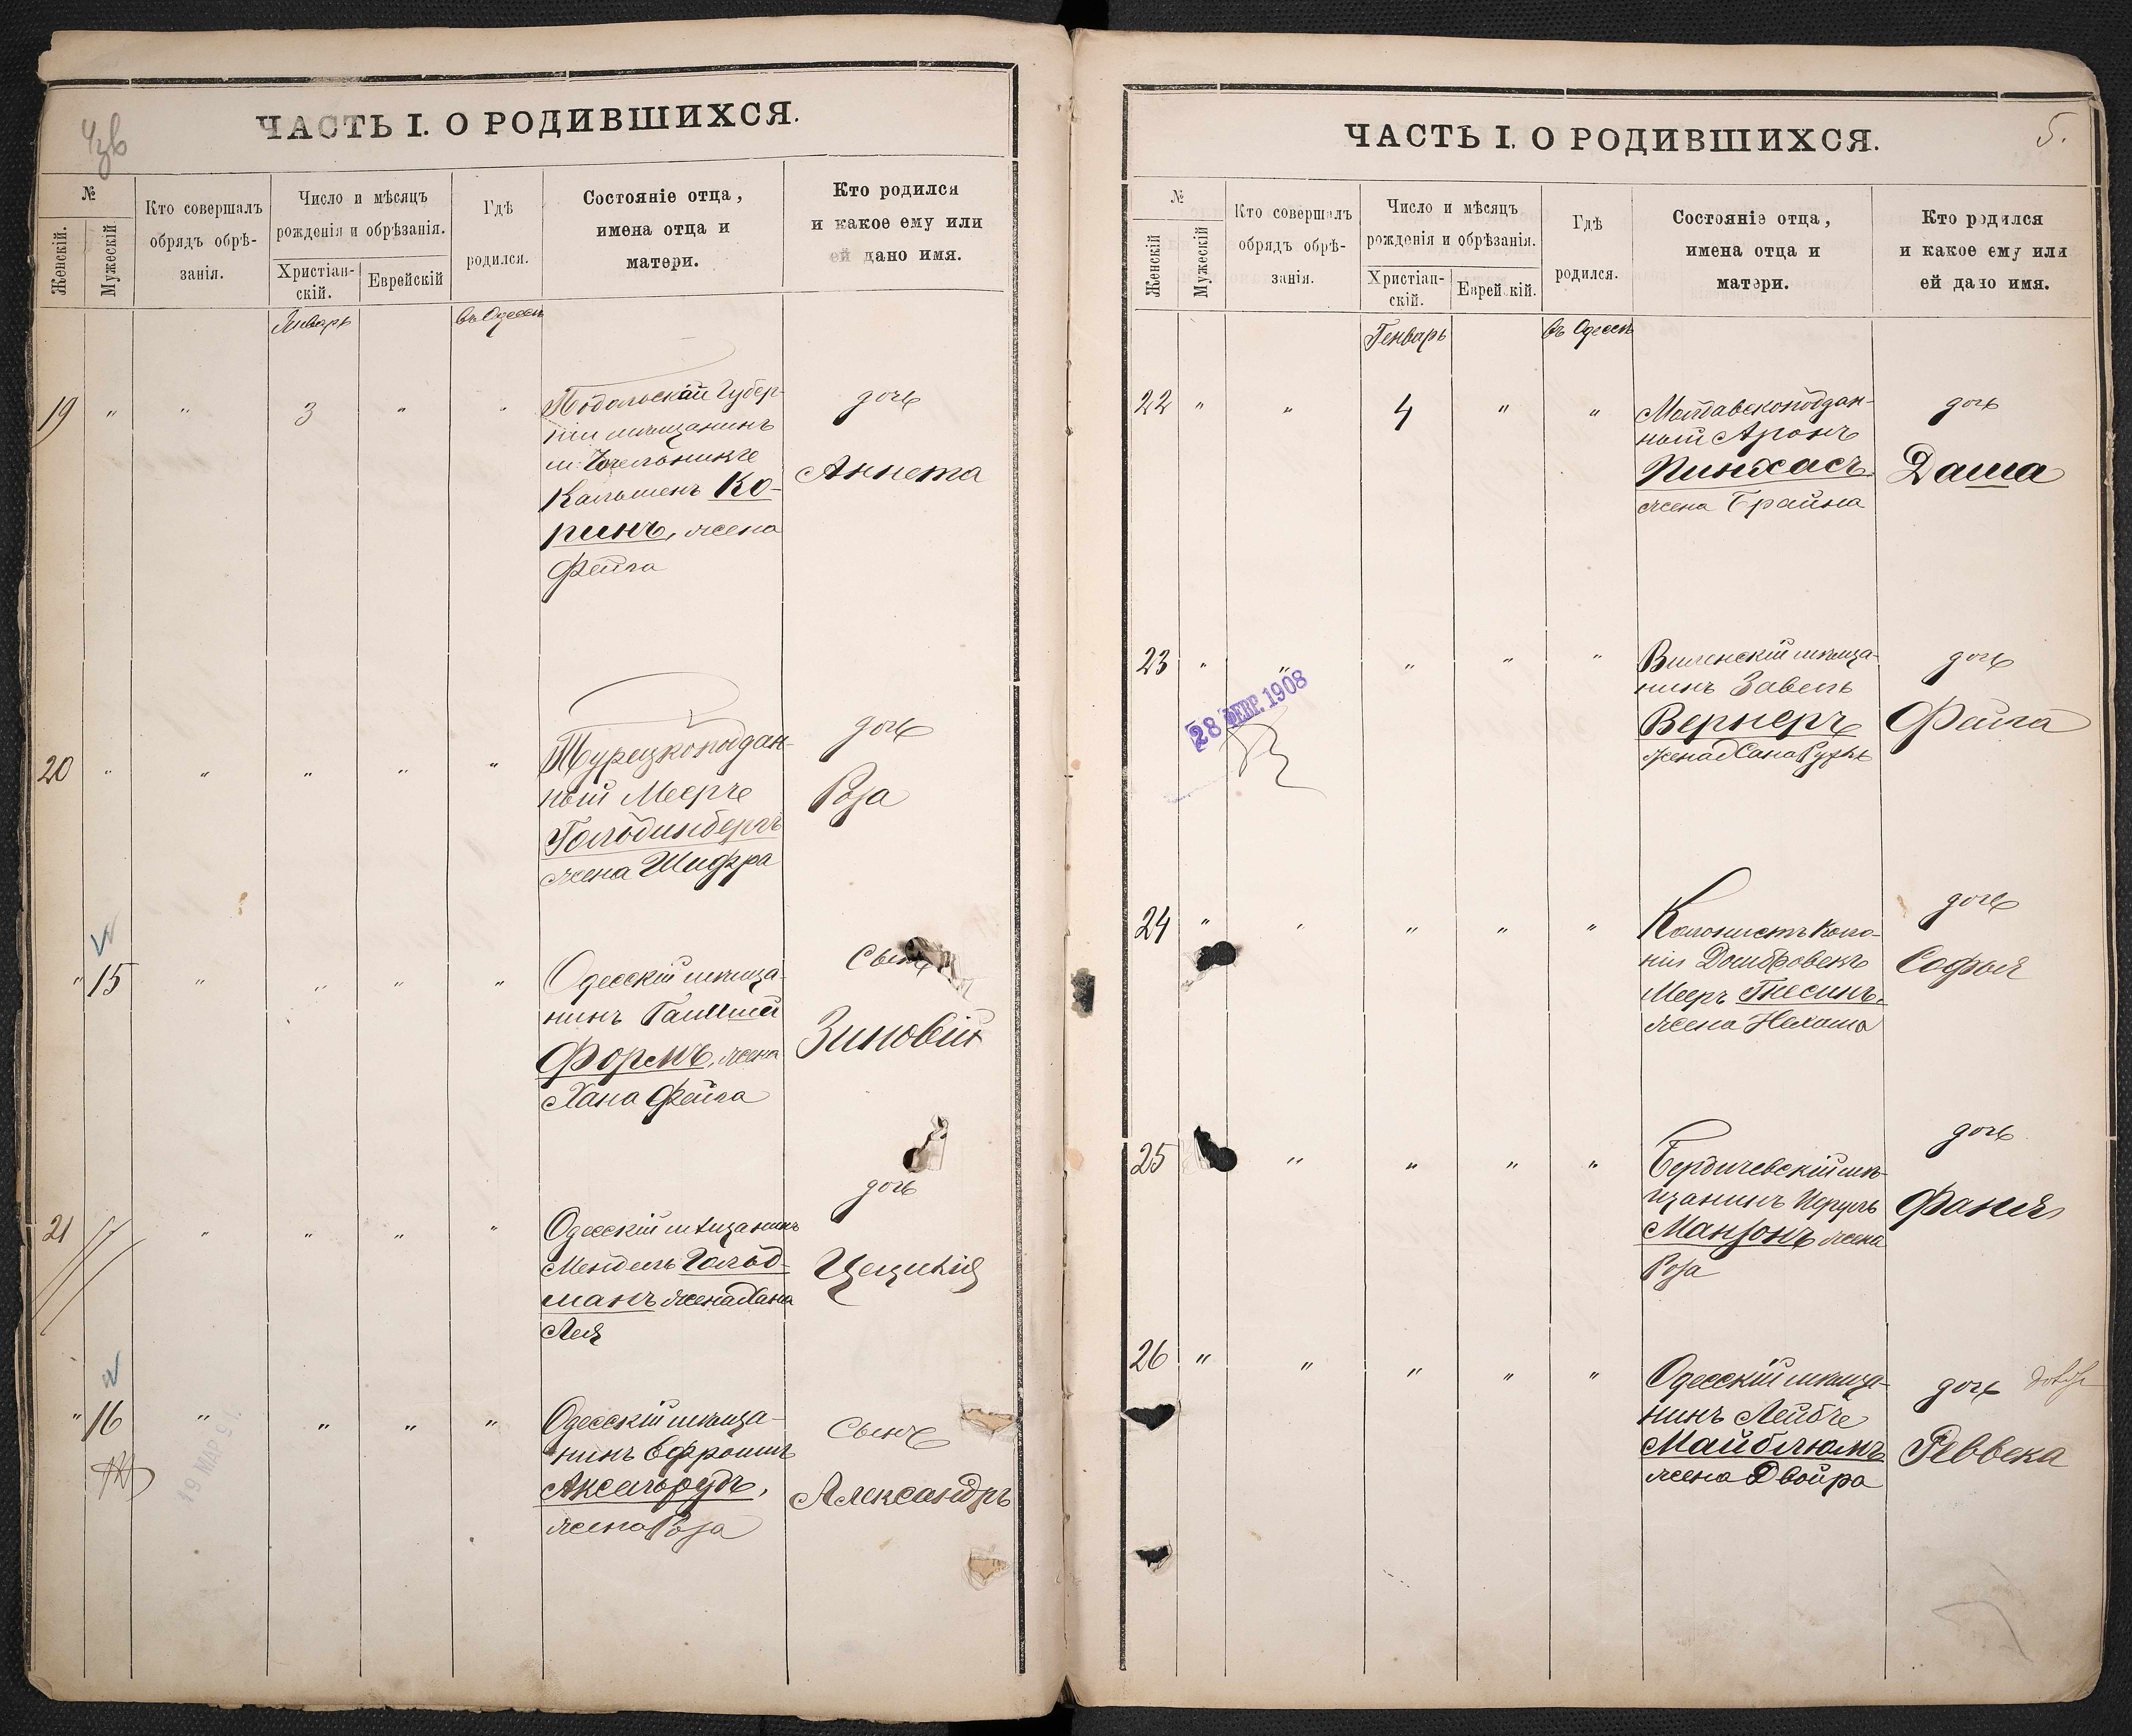 ЧАСТЬ I. О РОДИВШИХСЯ.
№
Женскій.
Мужескій
Кто совершалъ
обрядъ обрѣ-
занія.
Число и мѣсяцъ
рожденія и обрѣзанія.
Христіан-
скій.
Еврейскій
Гдѣ
родился.
Состояніе отца,
имена отца и
матери.
Кто родился
и какое ему или
ей дано имя.
Генварь
въ Одессѣ
19 " " 3 " "
Подольской Губер-
ніи мѣщанинъ
м.
Кальменъ Ко-
ринъ, жена
Фейга
дочь
Аннета
20 " " " " "
Турецкоподдан-
ный Мееръ
Гольдинбергъ
жена Шифра
дочь
Роза
" 15 " " " "
Одесскій мѣща-
нинъ
Формъ, жена
Хана Фейга
Сынъ
Зиновій
21 " " " "
Одесскій мѣщанинъ
Мендель Гольд-
манъ жена Хана
Лея
дочь
Цецилія
" 16 " " " "
19 МАР 9
Одесскій мѣща-
нинъ Ефроимъ
Аксельрудъ,
жена Роза
Сынъ
Александръ
ЧАСТЬ I. О РОДИВШИХСЯ.
5.
№
Женскій
Мужескій
Кто совершалъ
обрядъ обрѣ-
занія.
Число и мѣсяцъ
рожденія и обрѣзанія.
Христіан-
скій.
Еврейскій.
Гдѣ
родился.
Состояніе отца,
имена отца и
матери.
Кто родился
и какое ему или
ей дано имя.
Генварь
въ Одессѣ
22 " " 4 " "
Молдавскоподдан-
ный Аронъ
Пинхасъ
жена Брайна
дочь
Даша
23 " " " " "
28 ФЕВР. 1908
Виленскій мѣща-
нинъ Завель
Вернеръ
жена Хана
дочь
Фейга
24 " " " " "
Колонистъ коло-
ніи
Мееръ Гнесинъ,
жена Нехама
дочь
Софья
25 " " " "
Бердичевскій мѣ-
щанинъ
Манзонъ жена
Роза
дочь
Фаня
26 " " " " "
Одесскій мѣща-
нинъ Лейбъ
Майблюмъ
жена Двойра
дочь
Реввека